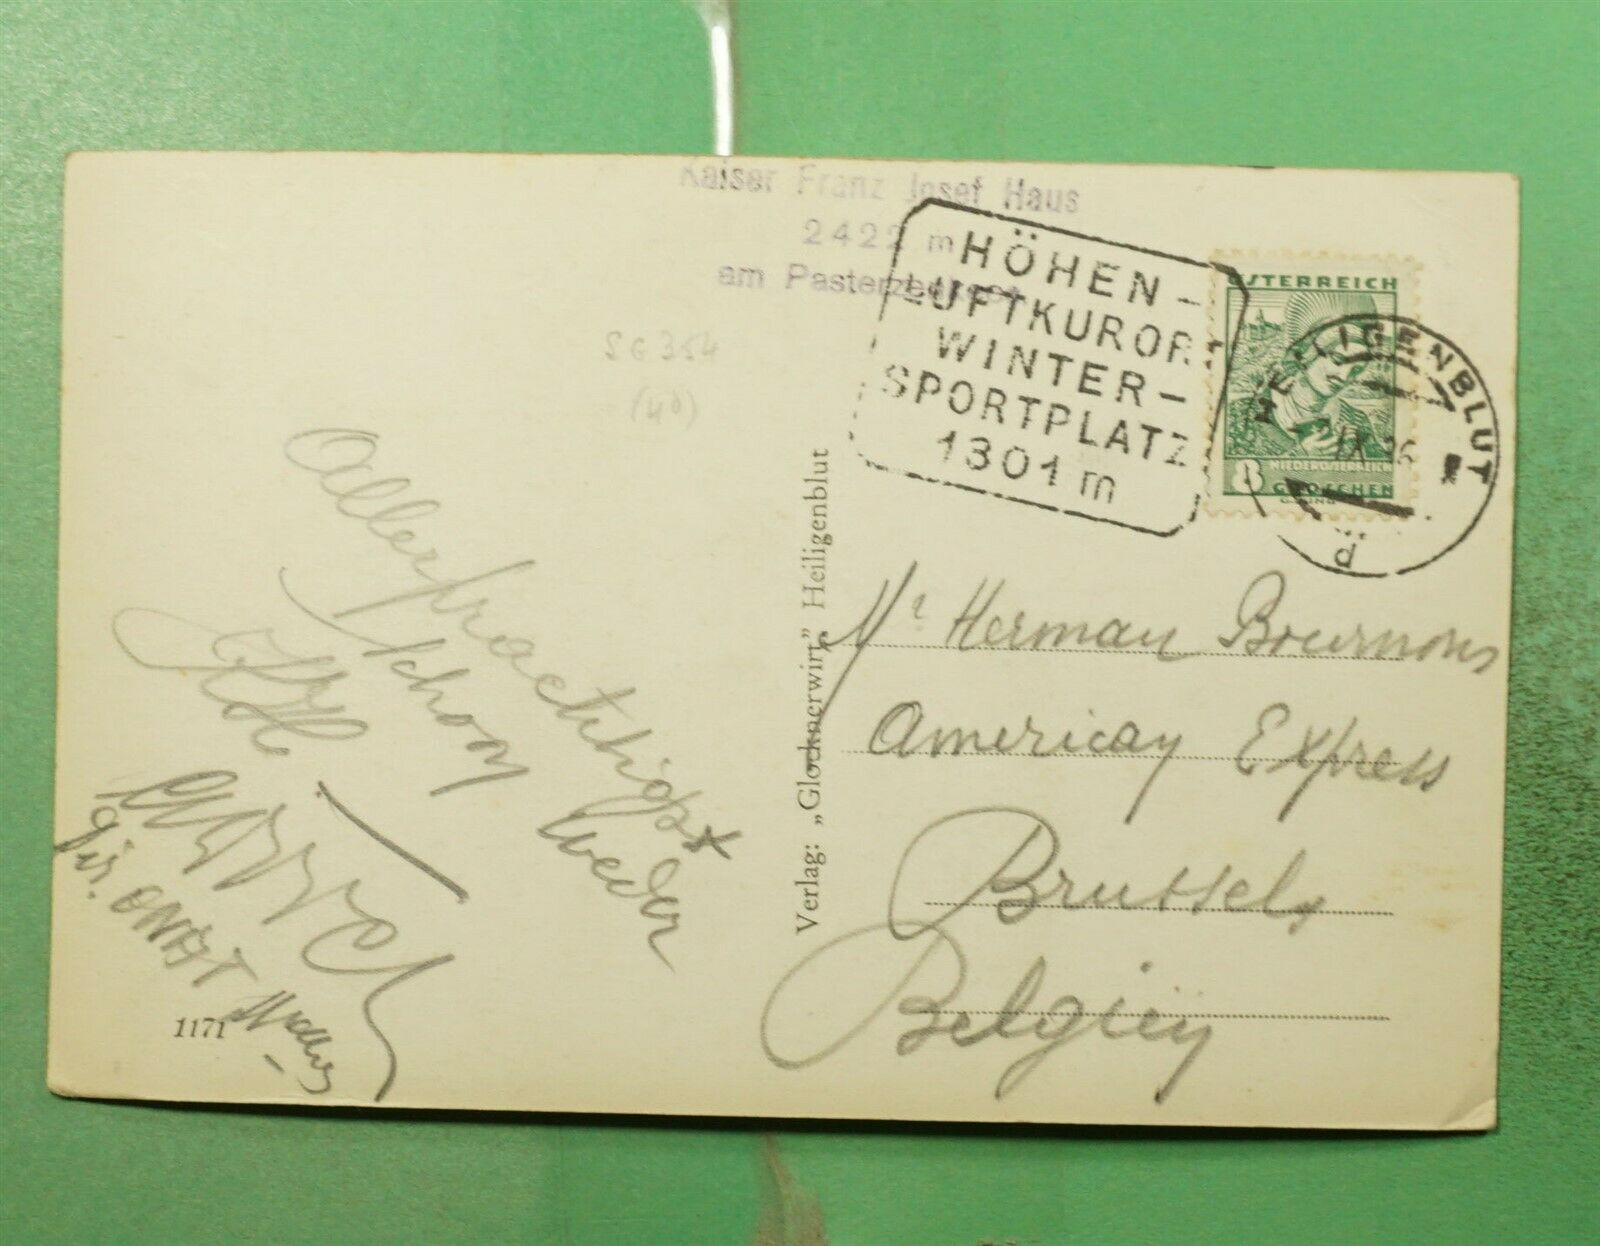 Kaiser Franz Josef Haus
2422 m
am Pasterzenkees
HÖHEN-
LUFTKURORT
WINTER-
SPORTPLATZ
1301 m
ÖSTERREICH
8 NIEDERÖSTERREICH
GROSCHEN
HEILIGENBLUT
IX 36
d
SG 354
(40)
Verlag: „Glocknerwirt" Heiligenblut
Mr Herman Bournons
American Express
Brussels
Belgien
Allerprachtigst
schon weder
1171